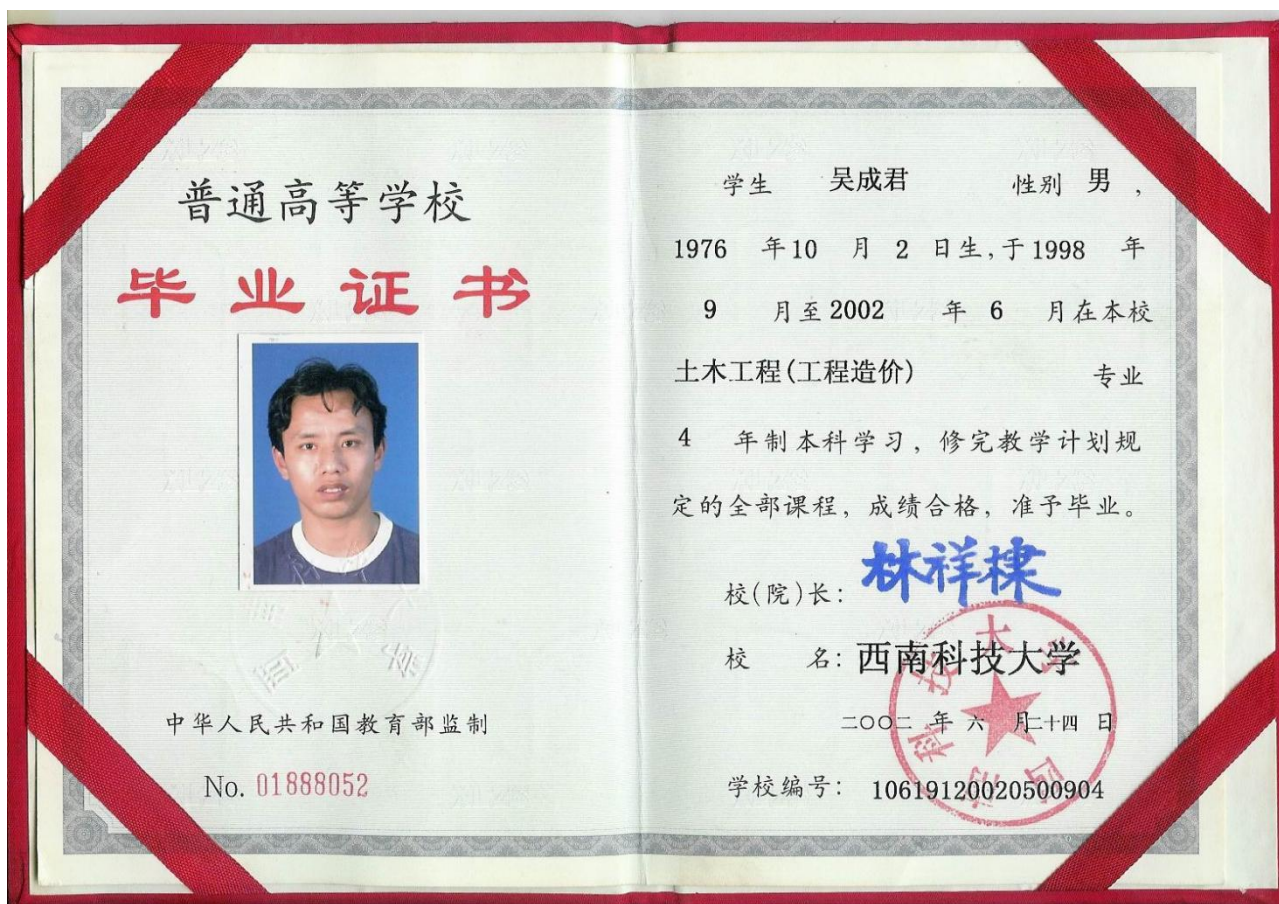 普通高等学校
毕业证书
中华人民共和国教育部监制
No. 01888052
学生 吴成君 性别 男 ,
1976 年 10 月 2 日生,于 1998 年
9 月至 2002 年 6 月在本校
土木工程(工程造价) 专业
4 年制本科学习，修完教学计划规
定的全部课程，成绩合格，准予毕业。
校(院)长: 林祥棣
校 名: 西南科技大学
二〇〇二 年 六 月二十四 日
学校编号: 106191200205000904
西南科技大学